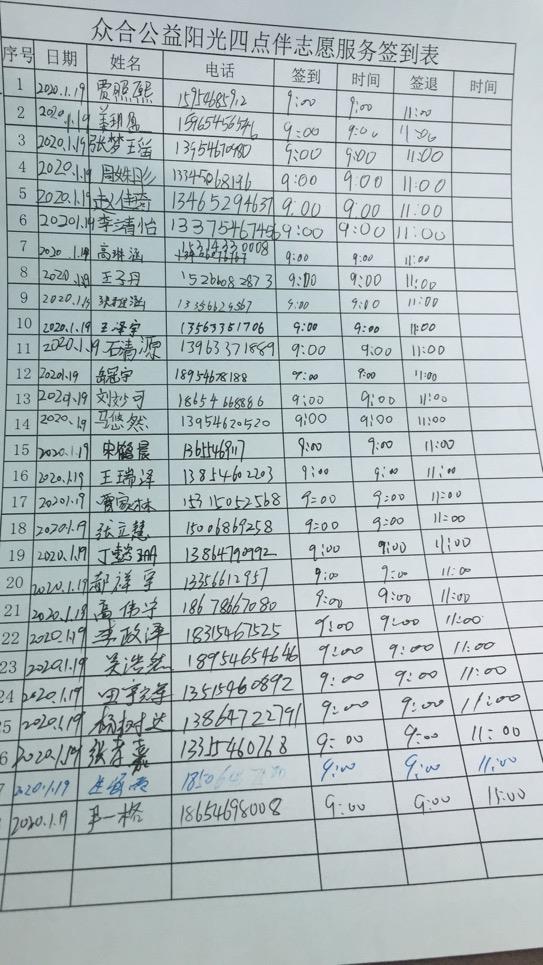 众合公益阳光四点伴志愿服务签到表
序号 日期 姓名 电话 签到 时间 签退 时间
1 2020.1.19 贾照熙 15954685912 9:00 9:00 11:00
2 2020.1.19 15965456546 9:00 9:00 11:00
3 2020.1.19 张梦瑶 13954670980 9:00 9:00 11:00
4 2020.1.19 周姝彤 13345068196 9:00 9:00 11:00
5 2020.1.19 赵佳琦 13465294637 9:00 9:00 11:00
6 2020.1.19 李清怡 13375467456 9:00 9:00 11:00
7 2020.1.19 高琳涵 15314330008 9:00 9:00 11:00
8 2020.1.19 王子丹 15266082873 9:00 9:00 11:00
9 2020.1.19 9:00 9:00 11:00
10 2020.1.19 王泽宇 13563351706 9:00 9:00 11:00
11 2020.1.19 石清源 13963371889 9:00 9:00 11:00
12 2020.1.19 岳冠宇 18954678188 9:00 9:00 11:00
13 2020.1.19 刘妙可 18654668886 9:00 9:00 11:00
14 2020.1.19 马悠然 13954620520 9:00 9:00 11:00
15 2020.1.19 宋鹤晨 9:00 9:00 11:00
16 2020.1.19 王瑞泽 13854602203 9:00 9:00 11:00
17 2020.1.19 贾家林 15315052568 9:00 9:00 11:00
18 2020.1.19 张立慧 15006869258 9:00 9:00 11:00
19 2020.1.19 丁懿珊 13864790992 9:00 9:00 11:00
20 2020.1.19 郝祥宇 13356612957 9:00 9:00 11:00
21 2020.1.19 高伟宁 18678667080 9:00 9:00 11:00
22 2020.1.19 李政泽 18315467525 9:00 9:00 11:00
23 2020.1.19 吴浩然 18954654646 9:00 9:00 11:00
24 2020.1.19 田宇 13515460892 9:00 9:00 11:00
25 2020.1.19 杨树达 13864722791 9:00 9:00 11:00
6 2020.1.19 张孝嘉 13355460768 9:00 9:00 11:00
7 2020.1.19 9:00 9:00 11:00
2020.1.19 尹一格 18654698008 9:00 9:00 11:00